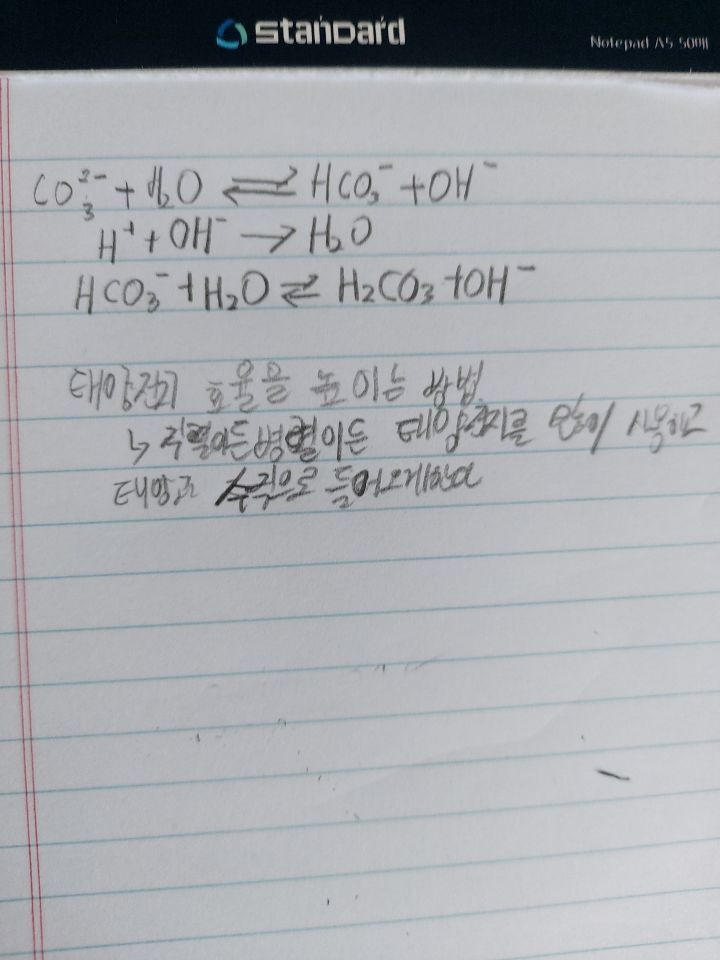 standard
Notepad A5 500원
CO₃²⁻ + H₂O ⇌ HCO₃⁻ + OH⁻
H⁺ + OH⁻ → H₂O
HCO₃⁻ + H₂O ⇌ H₂CO₃ + OH⁻
태양전지 효율을 높이는 방법
↳ 직렬이든 병렬이든 태양전지를 많이 사용하고
태양고 수직으로 들어오게한다